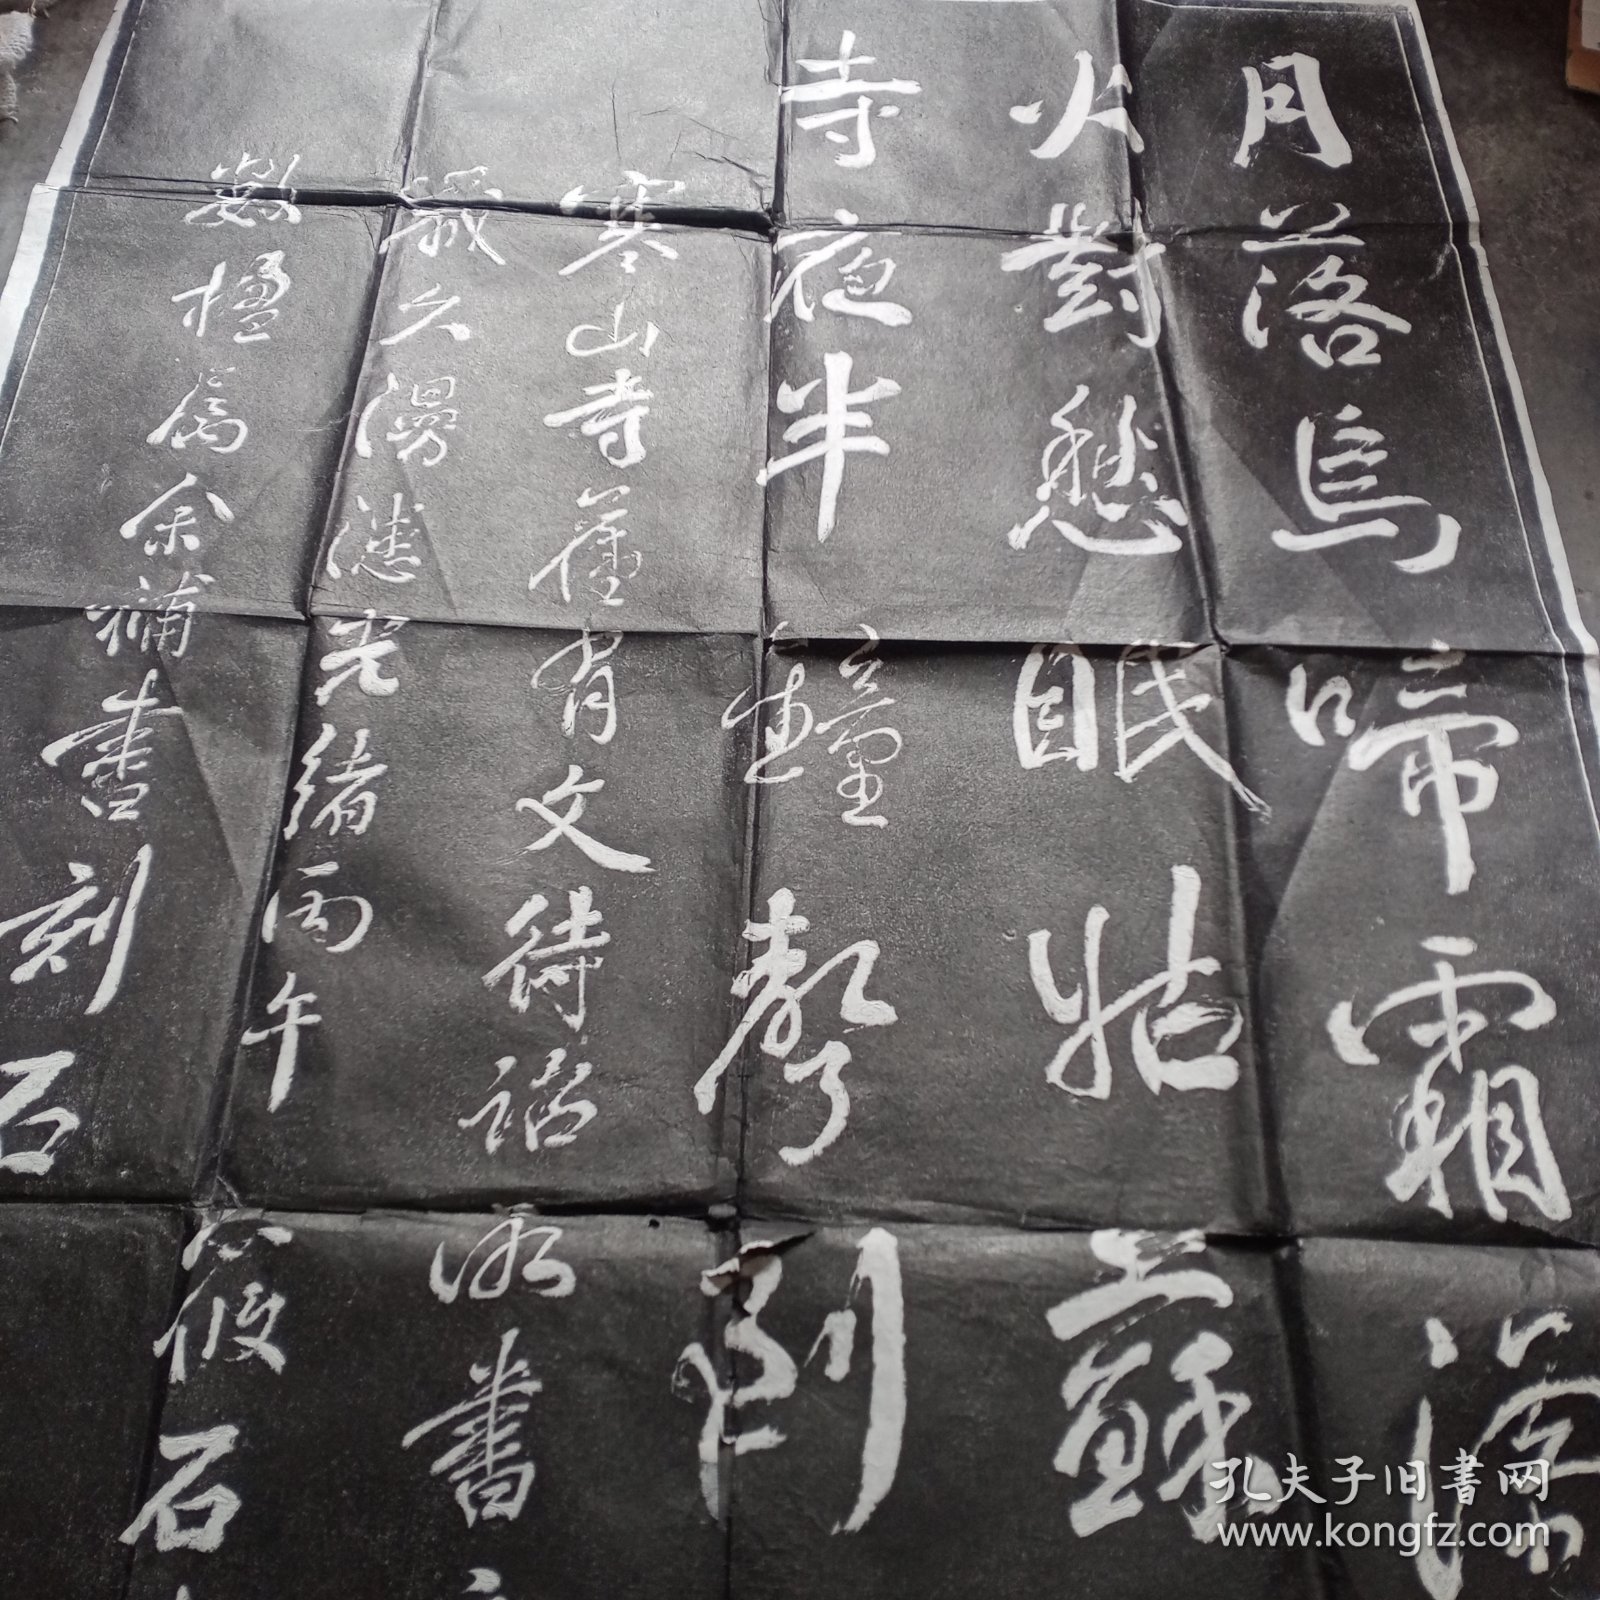 月落烏啼霜滿
火對愁眠姑蘇
寺夜半鐘聲到
寒山寺舊有文待詔所書
歲久漫漶光緒丙午筱石
數楹屬余補書刻石
孔夫子旧書网
www.kongfz.com